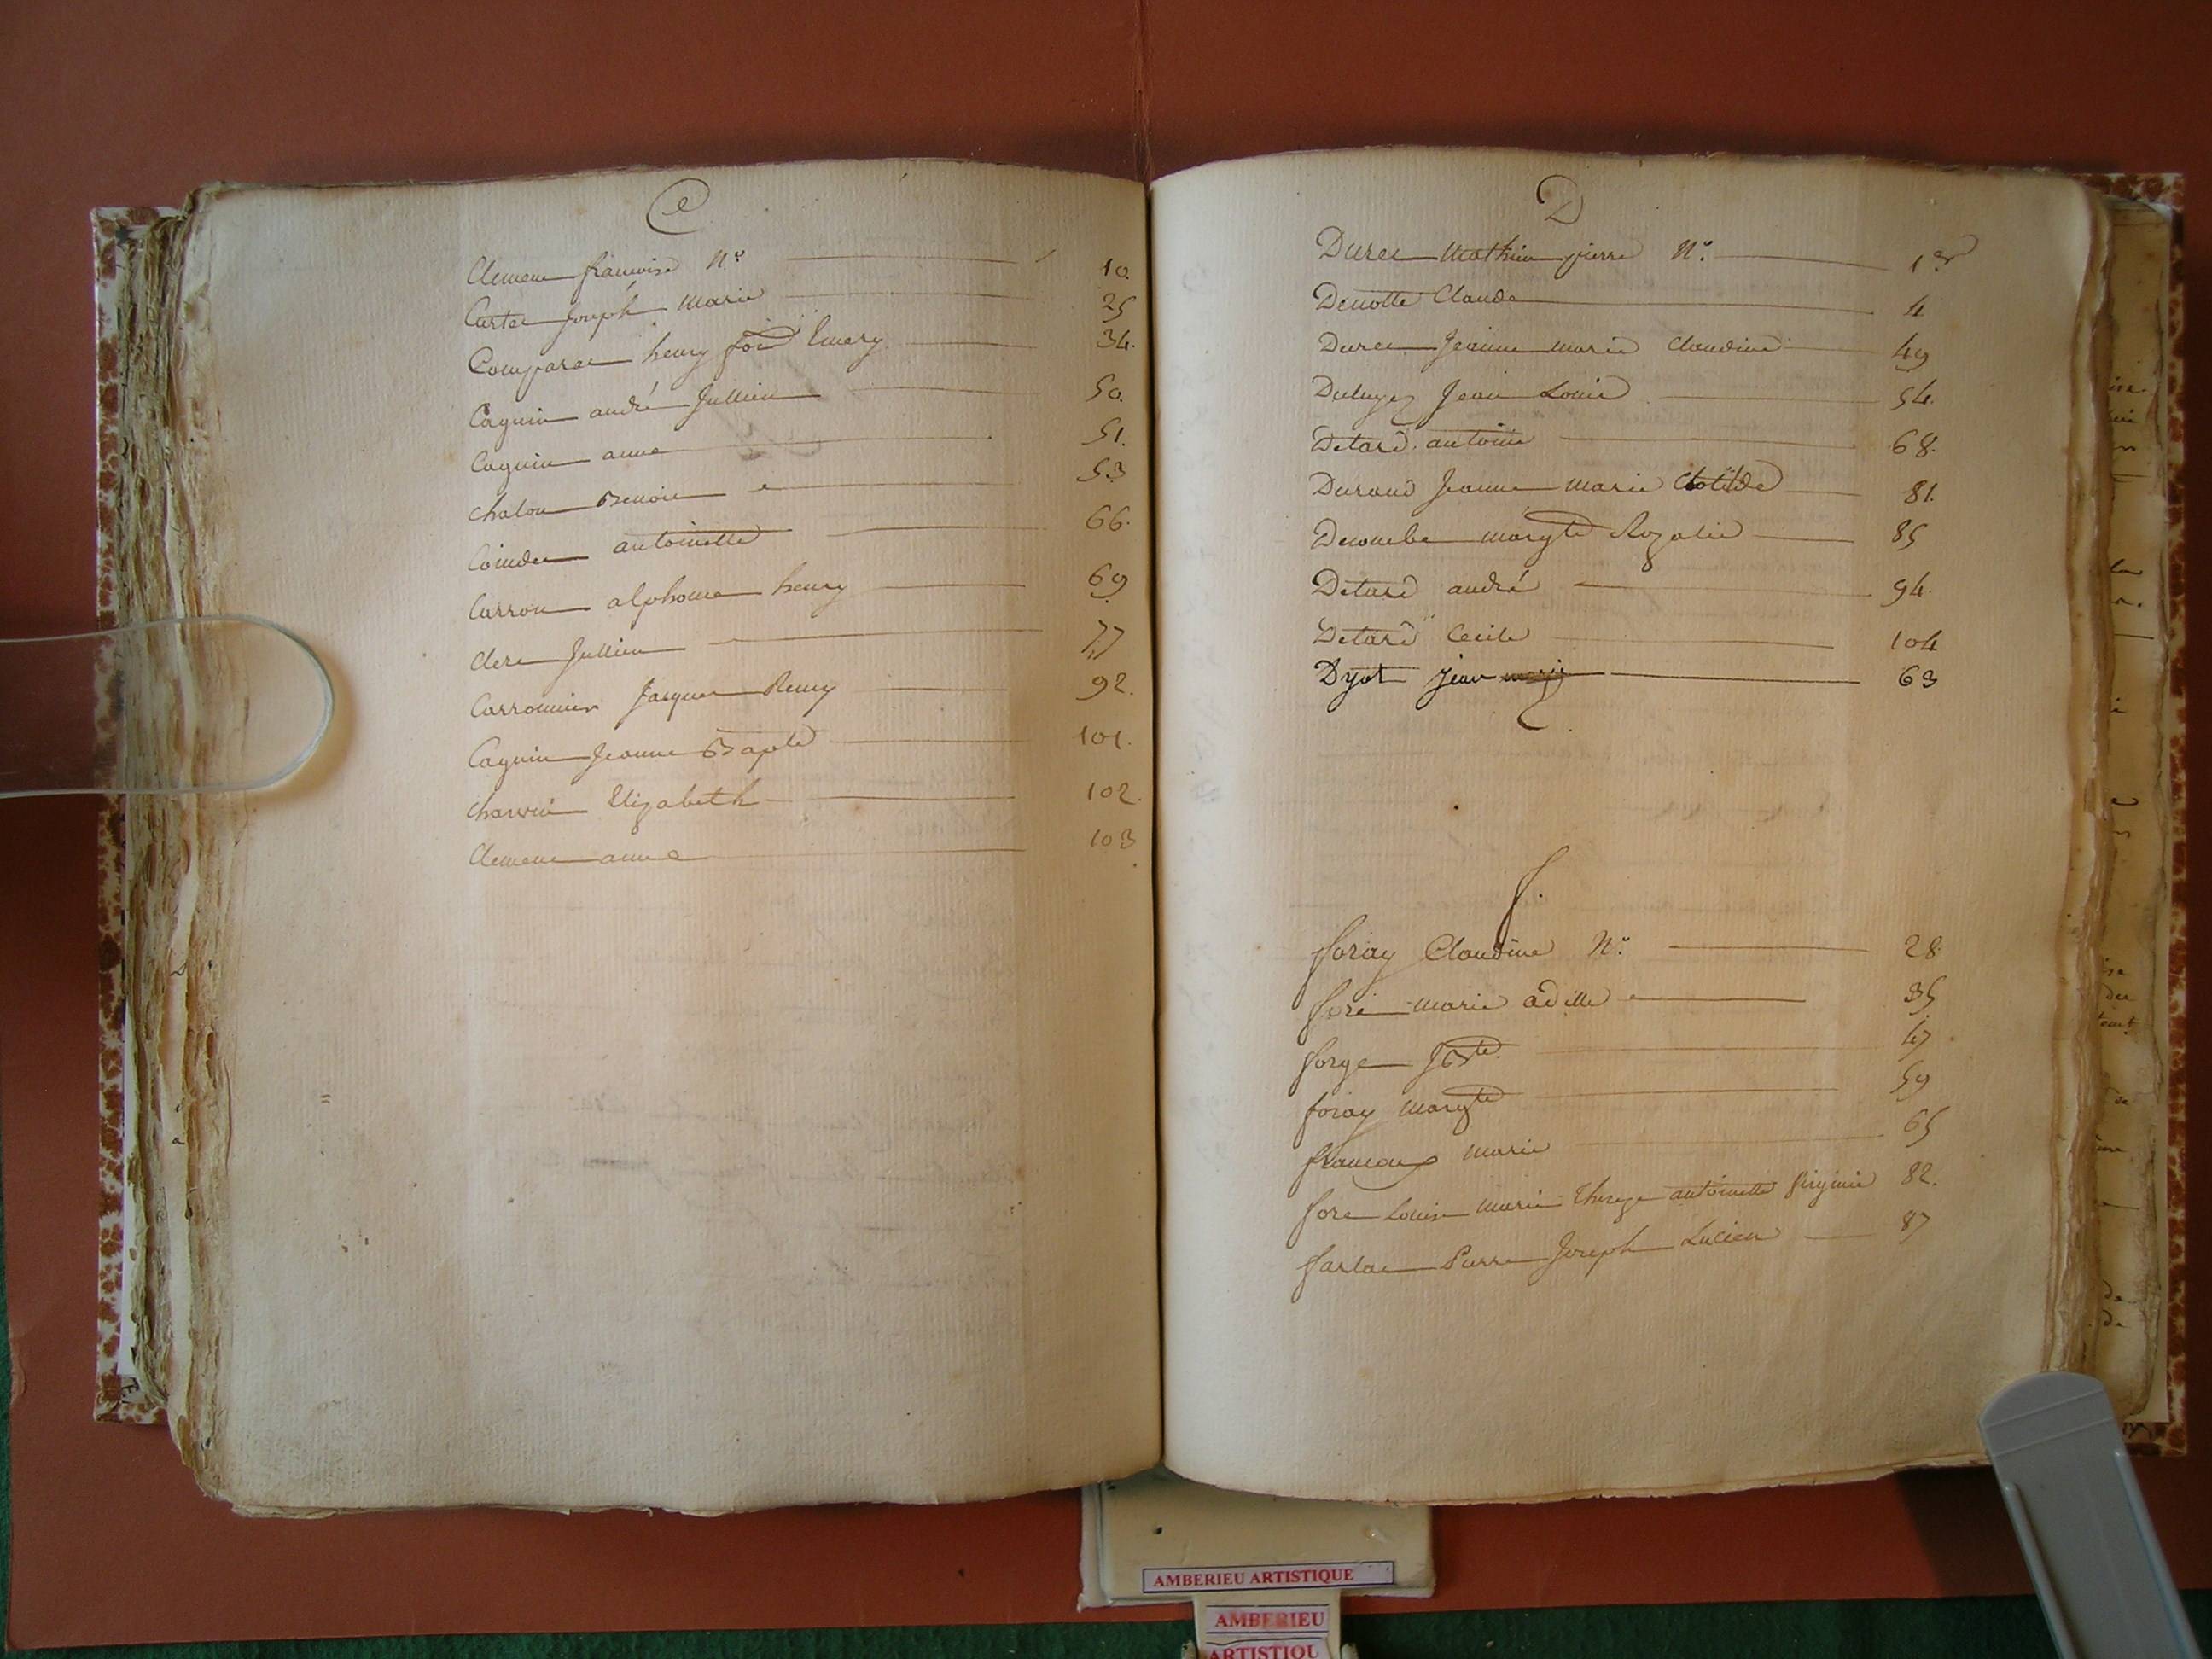 C
Clemenc françoise N.º 10.
Cartes joseph marie 25
Comparee henry fois Emery 34.
Caguin andré Jullien 50.
Caguin anne 51.
chalon Benoise 53
Coindee antoinette 66.
Carron alphonse henry 69
clere Jullien 77
Carronnier Jacques Remy 92.
Caguin Jeanne Bapte 101.
charvin Elizabeth 102.
Clemenc anne 103
D
Duree Mathieu pierre N.º 1er
Denotte Claude 4
Duree Jeanne marie Claudine 49
Jean Louis 54.
Detard antoine 68.
Durand Jeanne marie Clotilde 81.
Decombe margte Rozalie 85
Detard andré 94.
Detard Cecile 104
Dyot jean 63
f.
foray Claudine N.º 28.
foré marie adille 35
forge J Bte 47
foray margte 59
marie 65
fore Louise marie Thereze antoinette firginie 82.
farlae Pierre Joseph Lucien 87
AMBERIEU ARTISTIQUE
AMBERIEU
ARTISTIQU